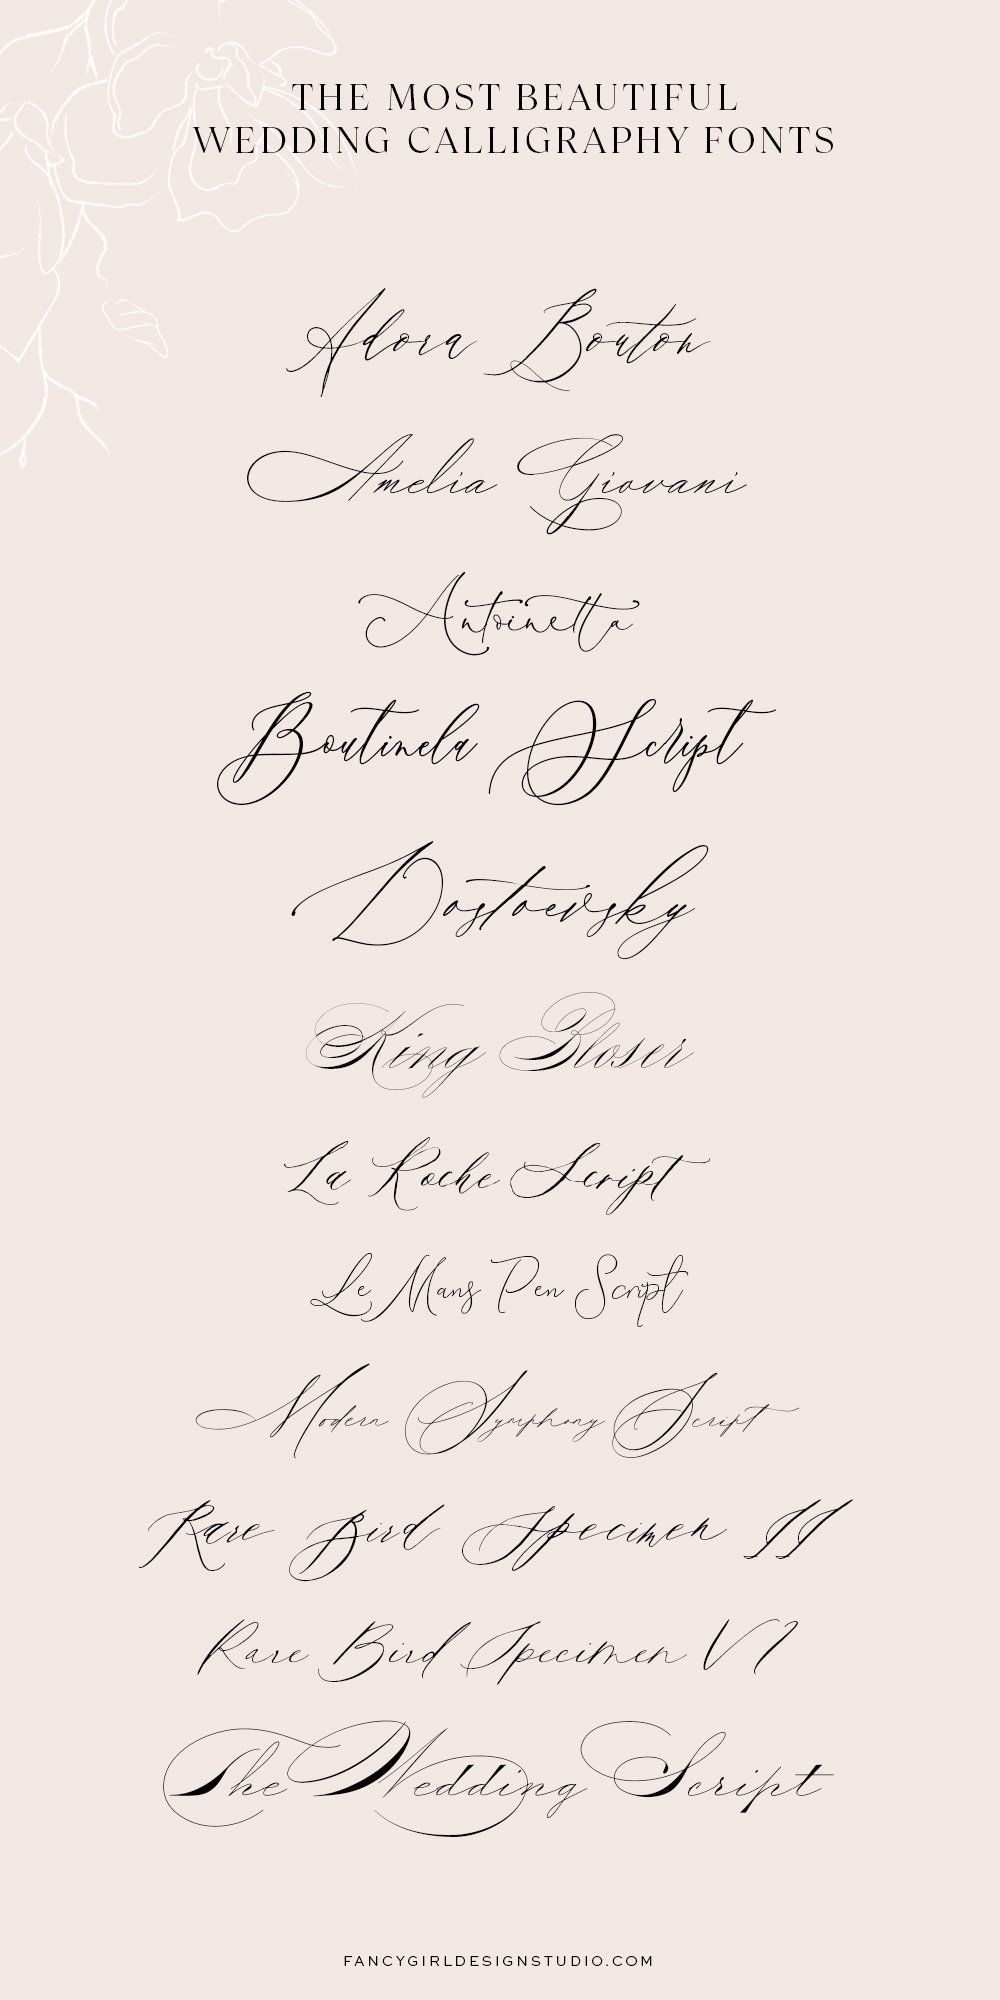 THE MOST BEAUTIFUL
WEDDING CALLIGRAPHY FONTS
Adora Bouton
Amelia Giovani
Antoinetta
Boutinela Script
Dostoevsky
King Bloser
La Roche Script
Le Mans Pen Script
Modern Symphony Script
Rare Bird Specimen II
Rare Bird Specimen VI
The Wedding Script
FANCYGIRLDESIGNSTUDIO.COM